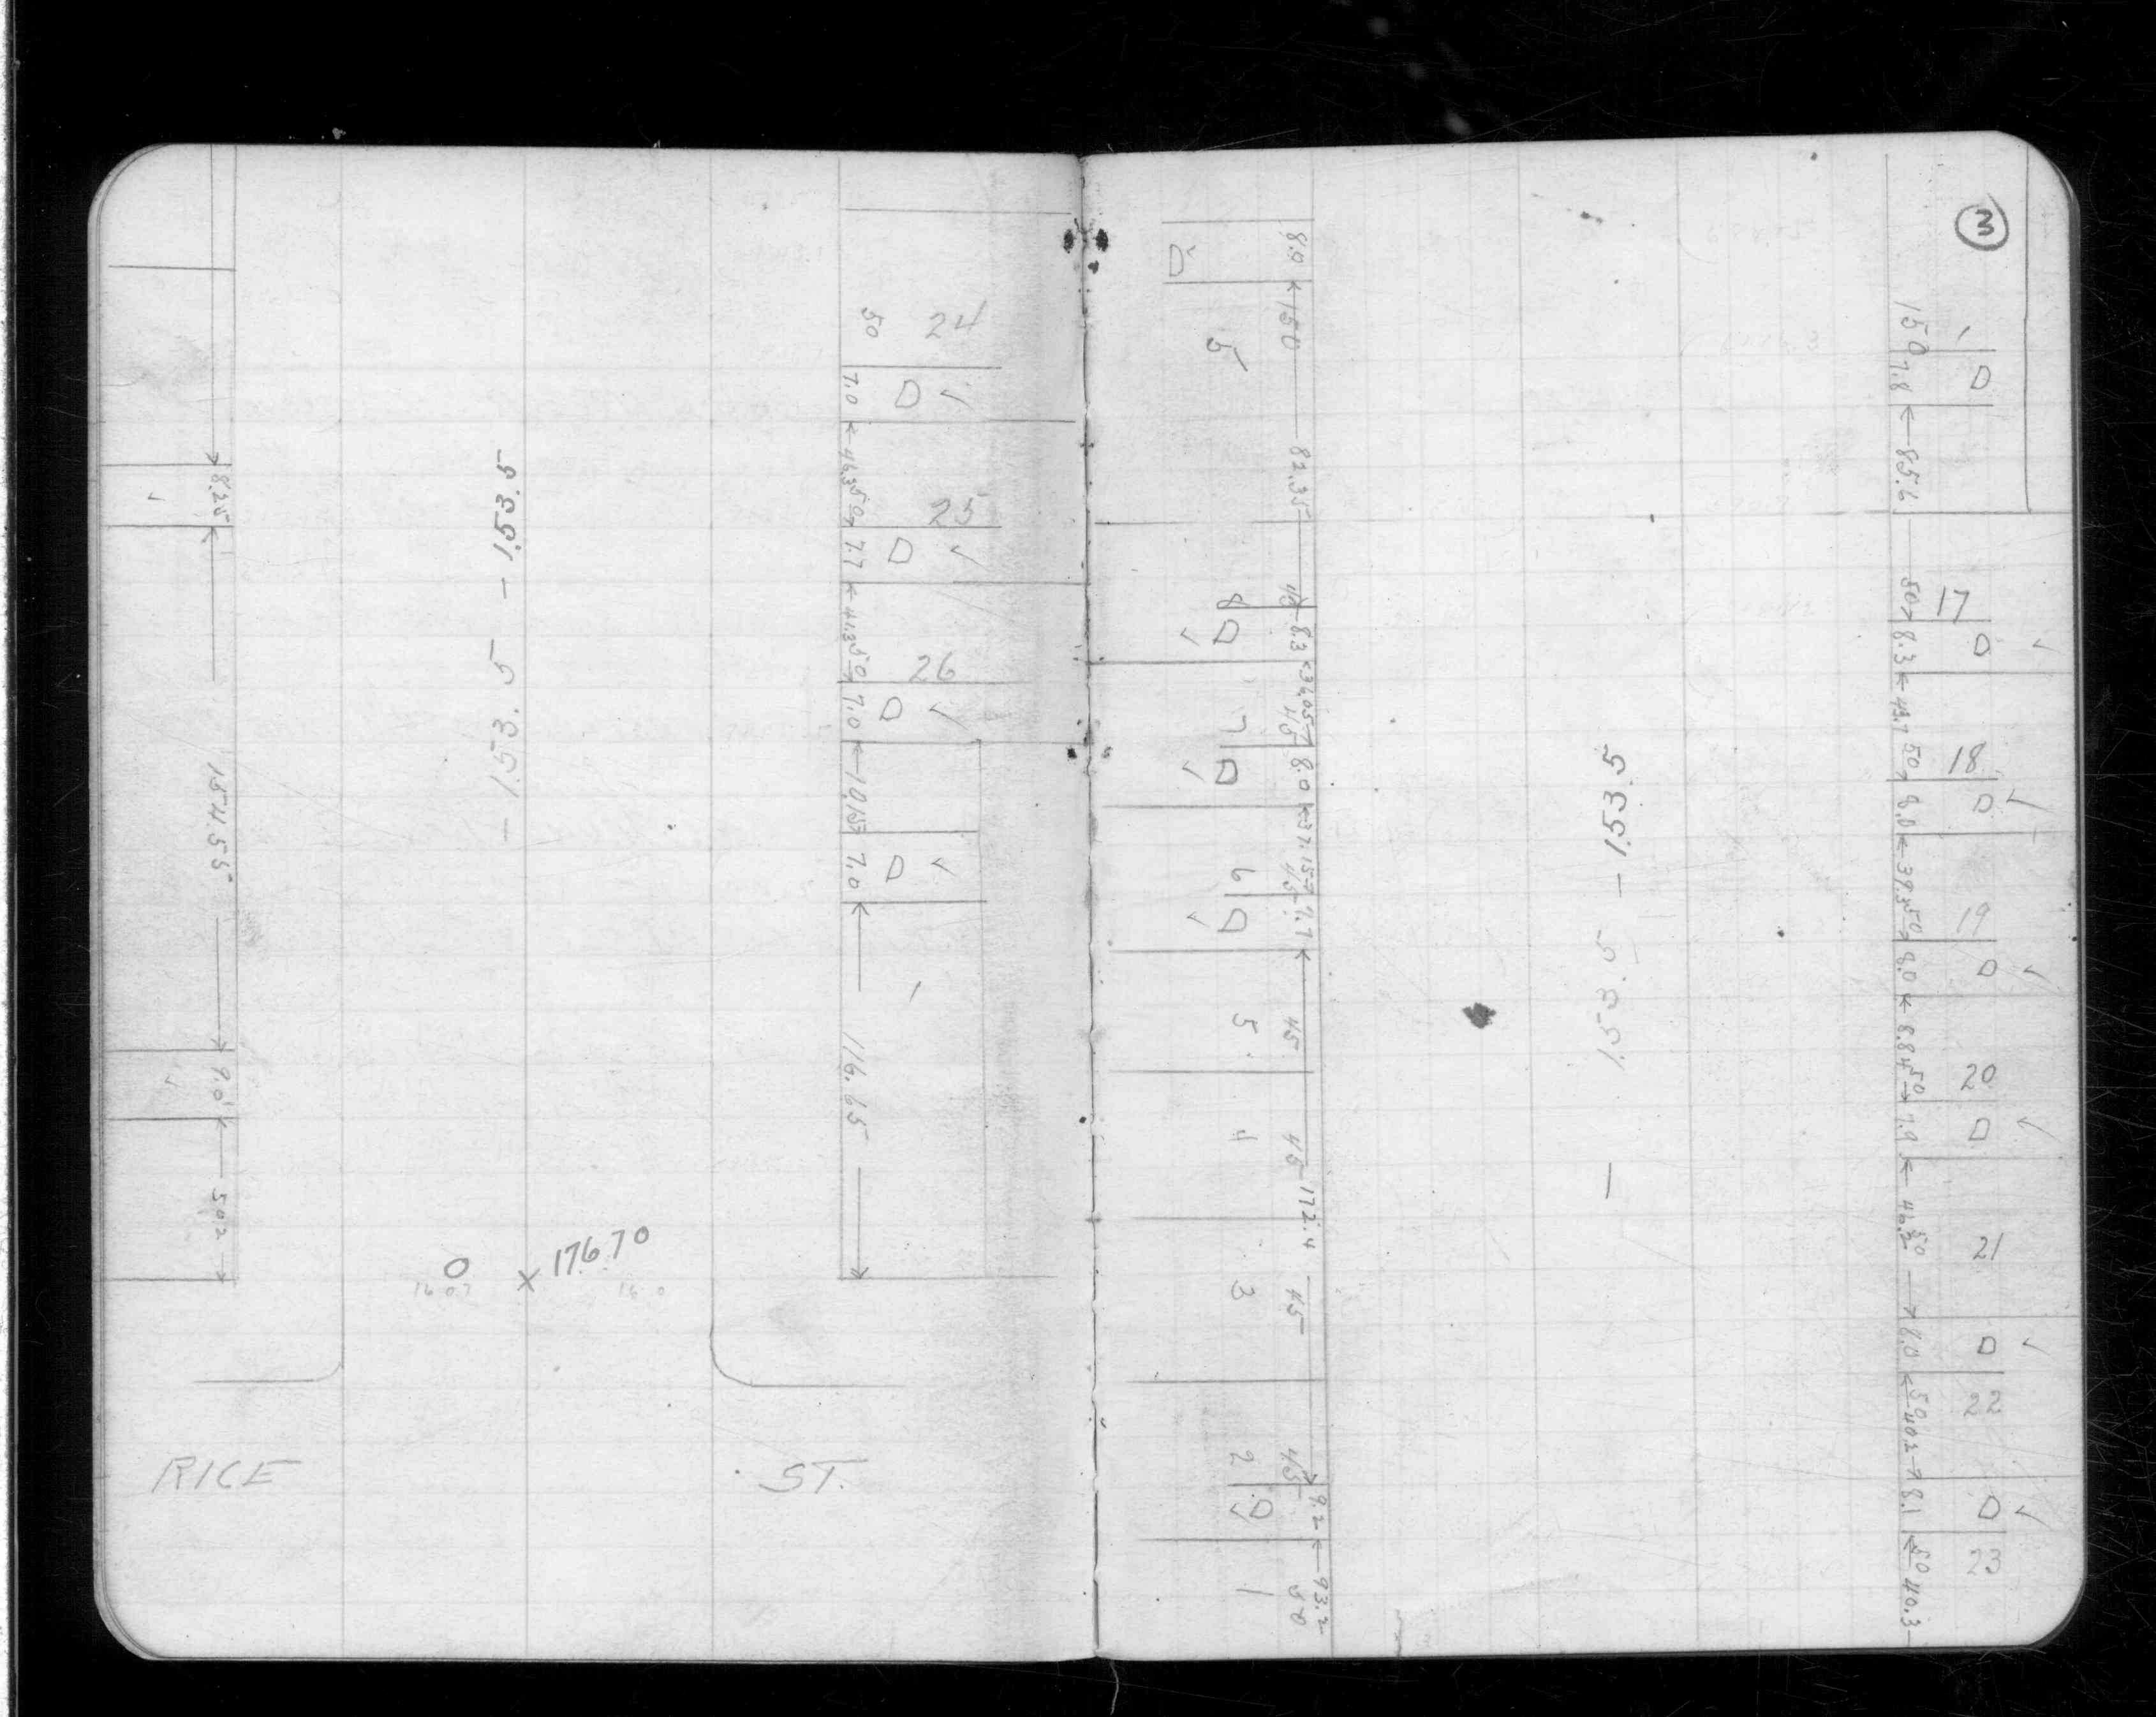 24
50
7.0 D ✓
153.5 - 153.5 -
8.25
46.3 50 25
7.7 D ✓
41.3 50 26
7.0 D ✓
154.55
10.15
7.0 D ✓
9.0
116.65
50.2
0 × 176.70
RICE ST.
3
D 8.0
5 150
82.35
8 45
D ✓ 8.3
36.05
7 45
D ✓ 8.0
37.15
6 45
D ✓ 7.7
5 45
4 45
172.4
3 45
2 45
D ✓ 9.2
1 50
93.2
- 153.5 - 153.5
150
7.8 D
85.6
50 17
8.3 D ✓
50 18
8.0 D ✓
39.3 50 19
8.0 D ✓
50 20
7.9 D ✓
50 21
8.0 D ✓
50 22
40.2
8.1 D ✓
50 23
40.3